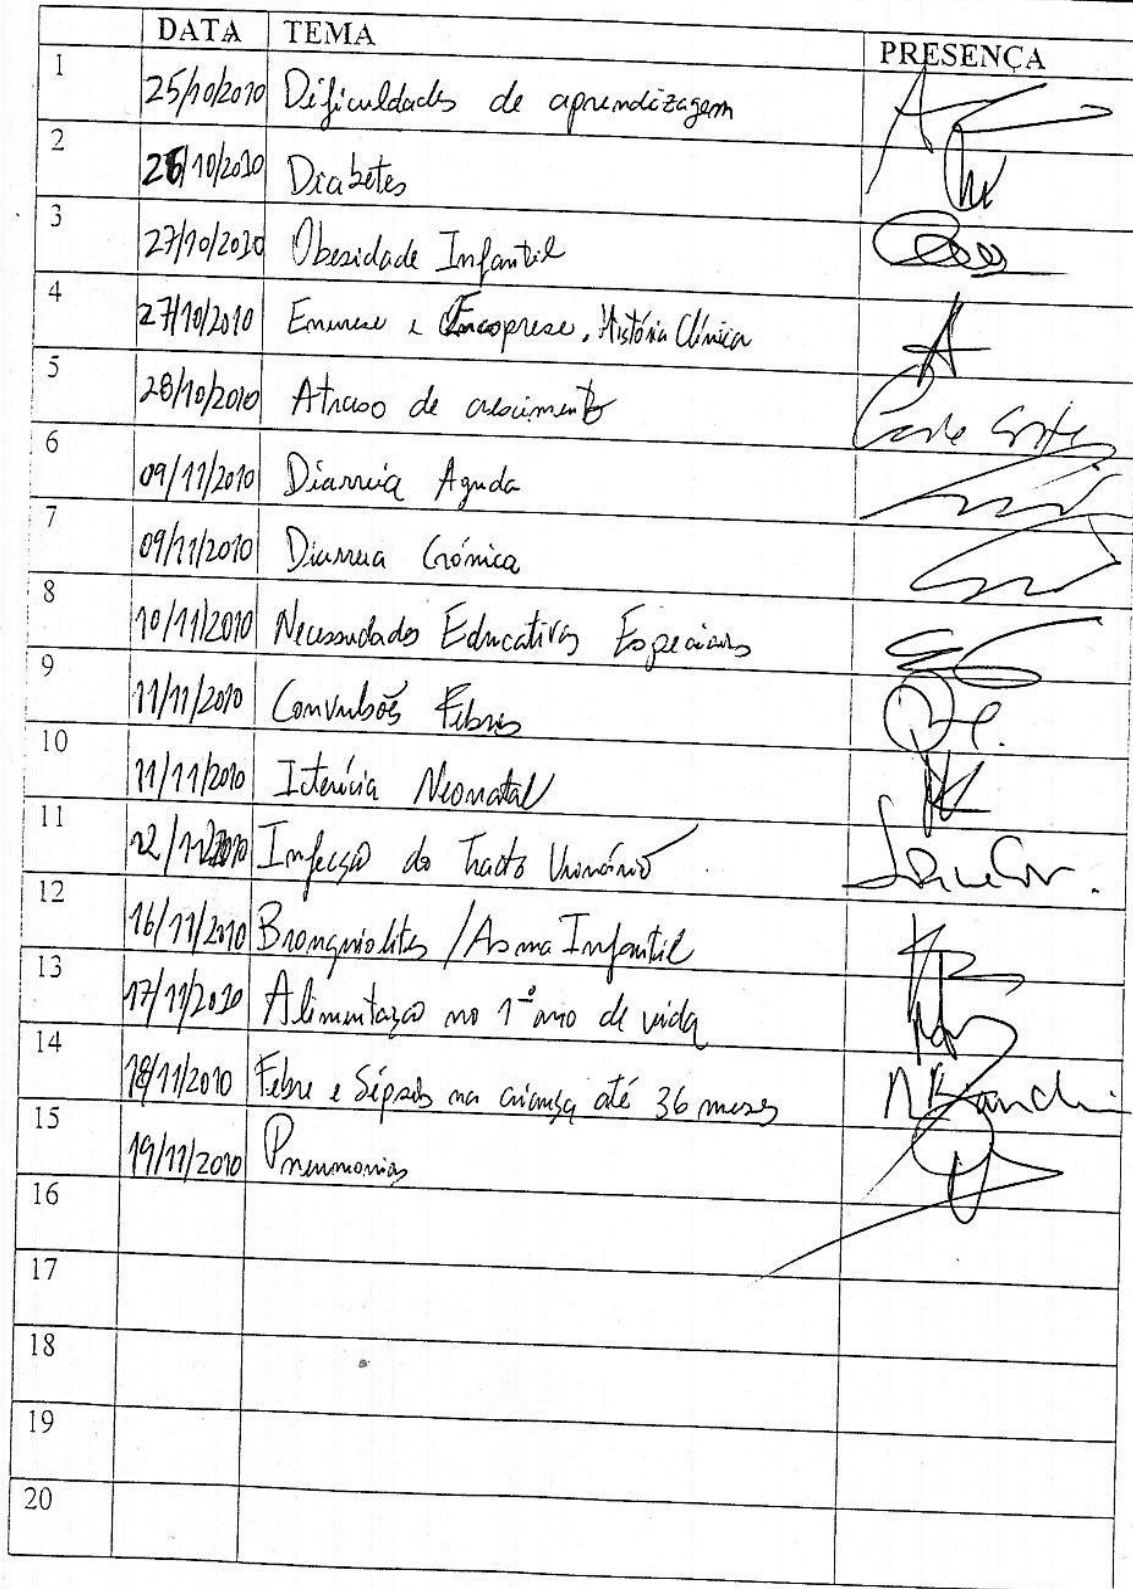 DATA TEMA PRESENÇA
1 25/10/2010 Dificuldades de aprendizagem
2 26/10/2010 Diabetes
3 27/10/2010 Obesidade Infantil
4 27/10/2010 Enurese e Encoprese, História Clínica
5 28/10/2010 Atraso de crescimento
6 09/11/2010 Diarreia Aguda
7 09/11/2010 Diarreia Crónica
8 10/11/2010 Necessidades Educativas Especiais
9 11/11/2010 Convulsões Febris
10 11/11/2010 Icterícia Neonatal
11 12/11/2010 Infecção do Tracto Urinário
12 16/11/2010 Bronquiolites / Asma Infantil
13 17/11/2010 Alimentação no 1º ano de vida
14 18/11/2010 Febre e Sépsis na criança até 36 meses
15 19/11/2010 Pneumonias
16
17
18
19
20